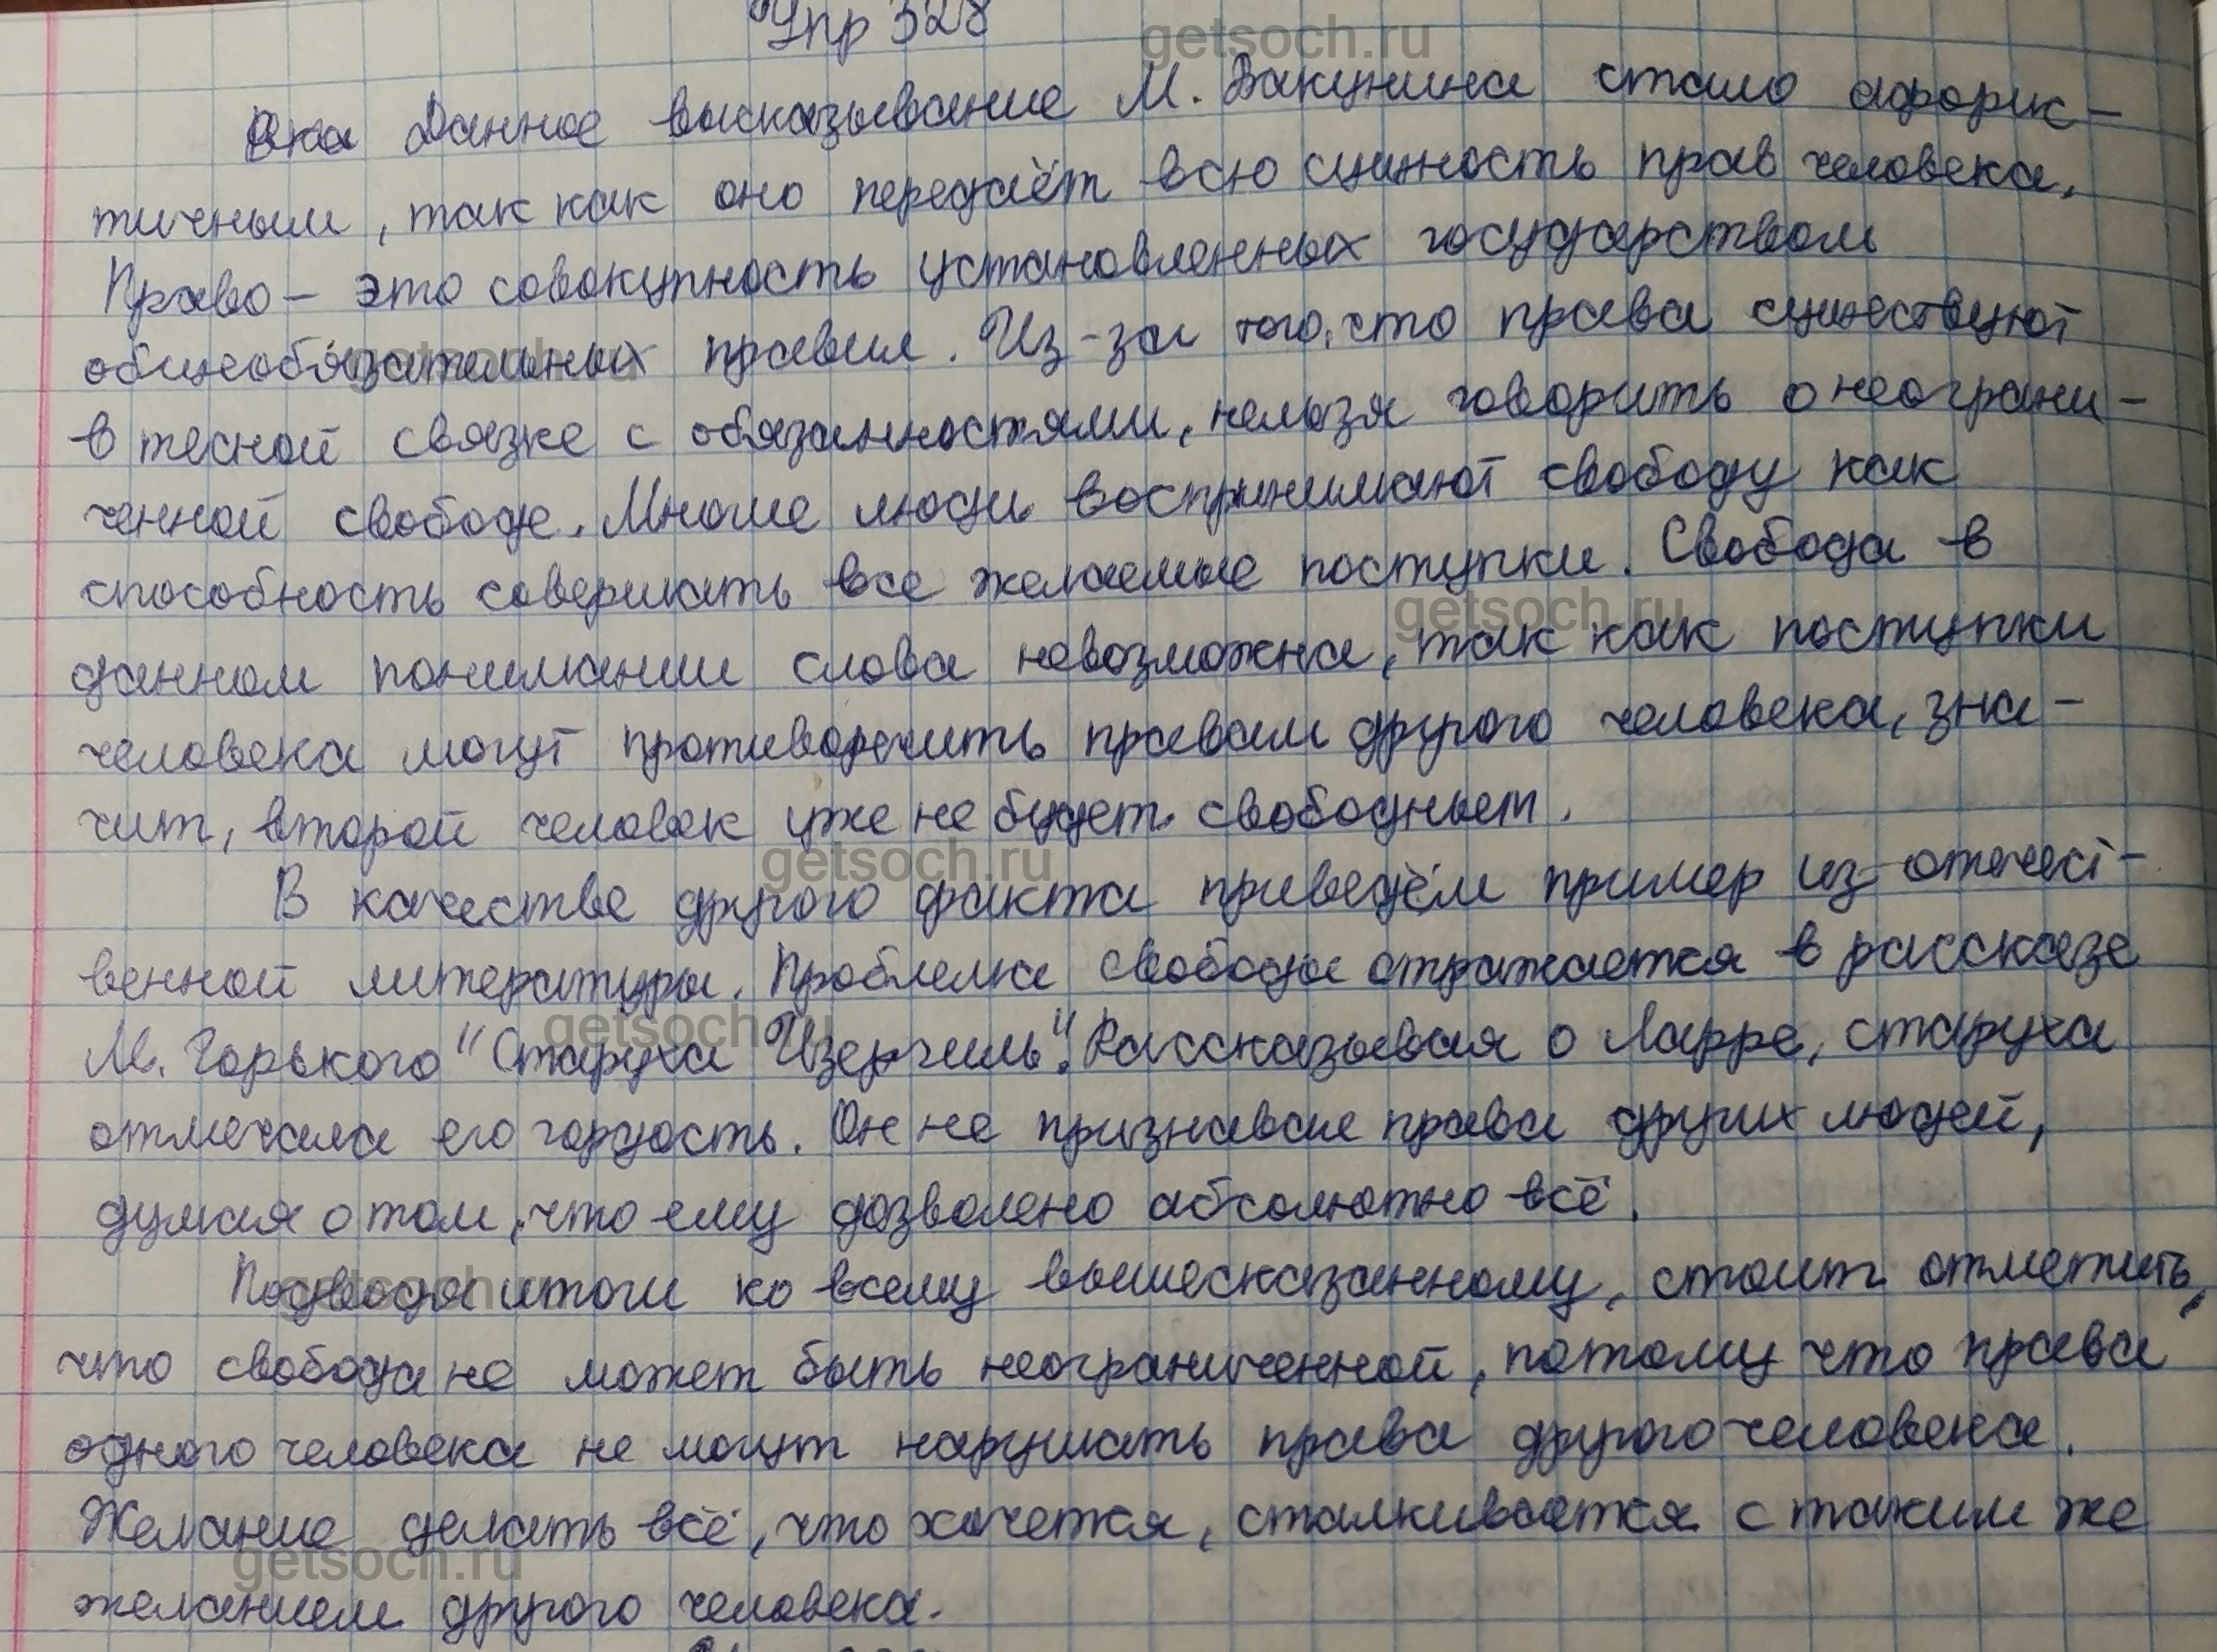 Упр 328
Данное высказывание М. Бакунина стало афорис-
тичным, так как оно передаёт всю сущность прав человека.
Право – это совокупность установленных государством
общеобязательных правил. Из-за того, что права существуют
в тесной связке с обязанностями, нельзя говорить о неограни-
ченной свободе. Многие люди воспринимают свободу как
способность совершать все желаемые поступки. Свобода в
данном понимании слова невозможна, так как поступки
человека могут противоречить правам другого человека, зна-
чит, второй человек уже не будет свободным.
В качестве другого факта приведём пример из отечест-
венной литературы. Проблема свободы отражается в рассказе
М. Горького "Старуха Изергиль". Рассказывая о Ларре, старуха
отмечала его гордость. Он не признавал права других людей,
думая о том, что ему дозволено абсолютно всё.
Подводя итоги ко всему вышесказанному, стоит отметить,
что свобода не может быть неограниченной, потому что права
одного человека не могут нарушать права другого человека.
Желание делать всё, что хочется, сталкивается с таким же
желанием другого человека.
getsoch.ru
getsoch.ru
getsoch.ru
getsoch.ru
getsoch.ru
getsoch.ru
getsoch.ru